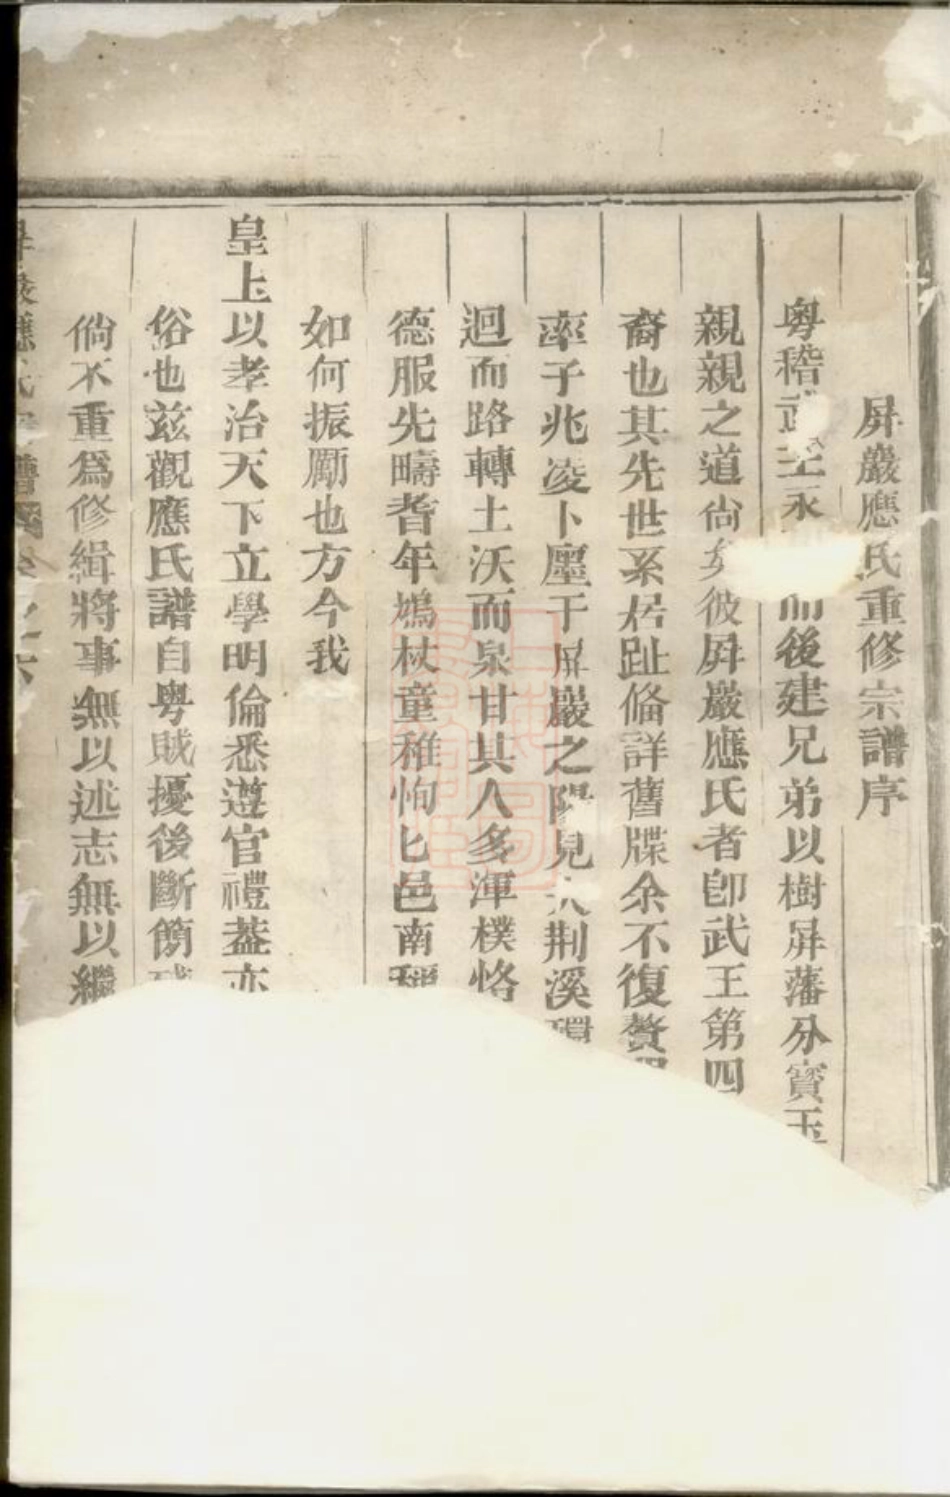 屏巖應氏重修宗譜序
粵稽武王永而後建兄弟以樹屏藩分寶玉
親親之道尙矣彼屏巖應氏者卽武王第四
裔也其先世系居趾俻詳舊牒余不復贅
率子兆凌卜廛于屏巖之陽見大荆溪環
迴而路轉土沃而泉甘其人多渾樸恪
德服先疇耆年鳩杖童稚怐匕邑南稱
如何振勵也方今我
皇上以孝治天下立學明倫悉遵官禮葢亦
俗也兹觀應氏譜自粵賊擾後斷簡殘
倘不重爲修緝將事無以述志無以繼
屏巖應氏宗譜